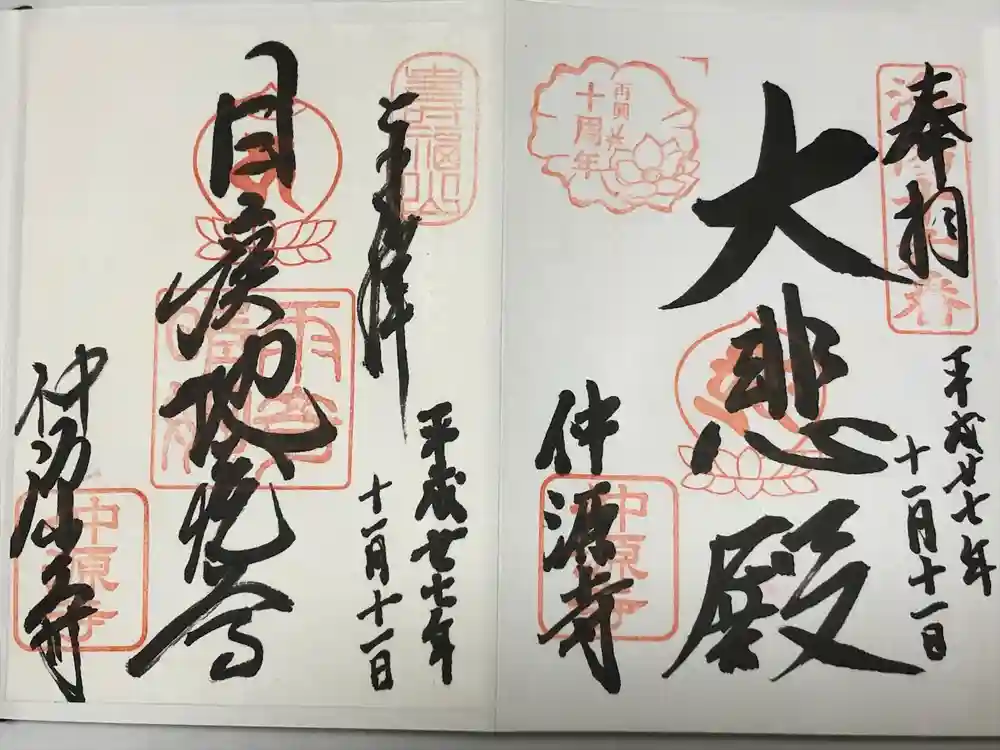 奉拝
平成廿七年
十一月十一日
大悲殿
仲源寺
再興
十周年
上拝
平成廿七年
十一月十一日
目疾地蔵尊
仲源寺
壽福山
雨奇晴好
仲源寺
仲源寺